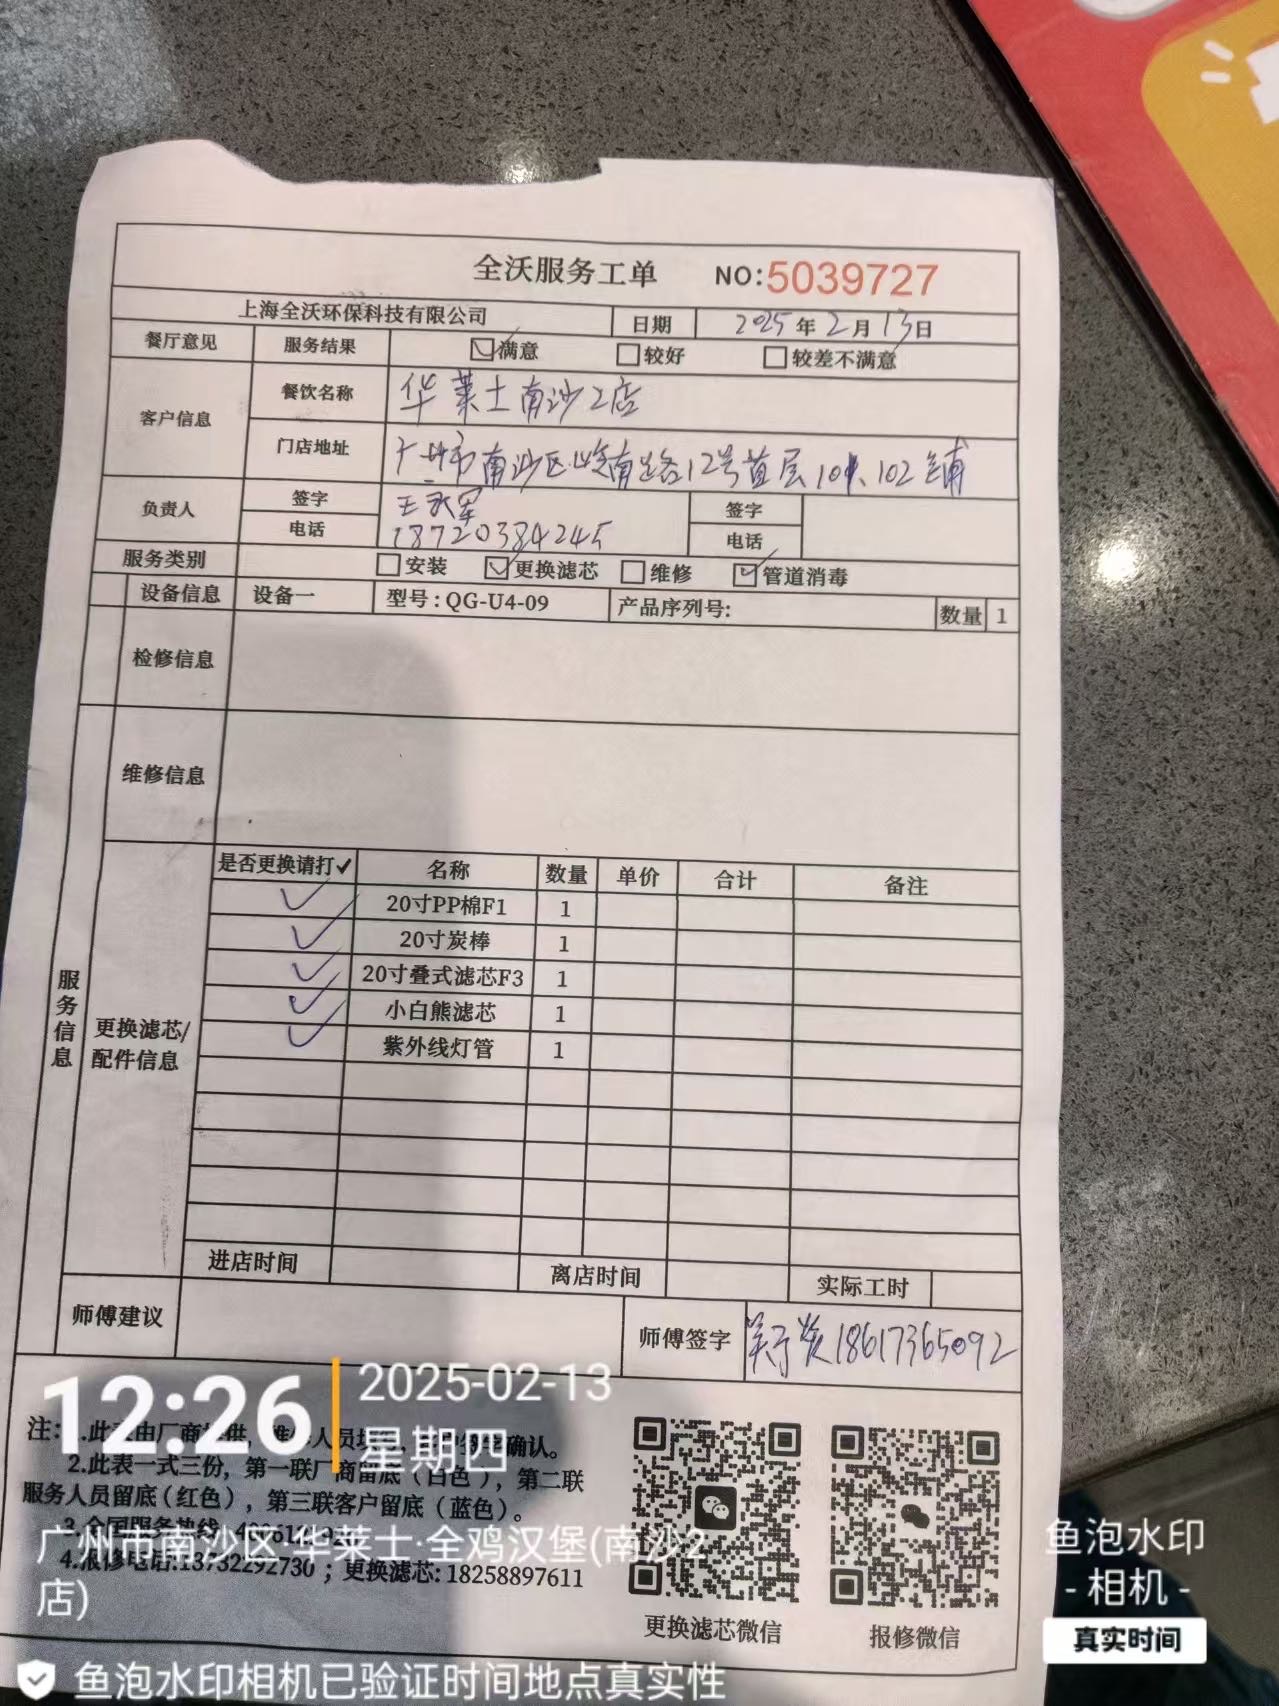 全沃服务工单 NO:5039727
上海全沃环保科技有限公司 日期 2025年2月13日
餐厅意见 服务结果 满意 较好 较差不满意
客户信息 餐饮名称 华莱士南沙2店
门店地址 广州市南沙区 南 路12号首层101、102铺
负责人 签字 王 军 签字
电话 18720384245 电话
服务类别 安装 更换滤芯 维修 管道消毒
设备信息 设备一 型号:QG-U4-09 产品序列号: 数量 1
检修信息
维修信息
服务信息
更换滤芯/
配件信息
是否更换请打✓ 名称 数量 单价 合计 备注
✓ 20寸PP棉F1 1
✓ 20寸炭棒 1
✓ 20寸叠式滤芯F3 1
✓ 小白熊滤芯 1
✓ 紫外线灯管 1
进店时间 离店时间 实际工时
师傅建议 师傅签字 18617365092
12:26 2025-02-13
星期四
注: 确认。
2.此表一式三份，第一联厂商留底（白色），第二联
服务人员留底（红色），第三联客户留底（蓝色）。
3.全国服务热线
4.报修电话:13732292730；更换滤芯:18258897611
广州市南沙区·华莱士·全鸡汉堡(南沙2
店)
更换滤芯微信 报修微信
鱼泡水印
- 相机 -
真实时间
鱼泡水印相机已验证时间地点真实性